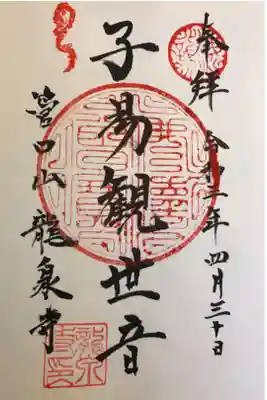 奉拝 令和二年 四月三十日
子易観世音
口山 龍泉寺
龍泉寺印